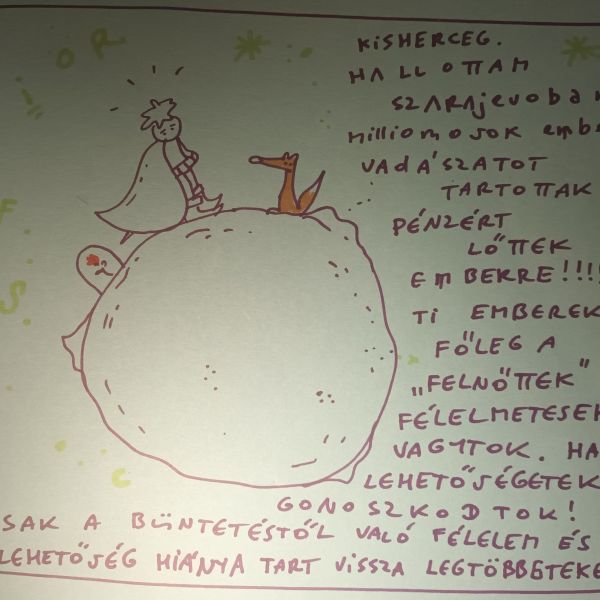 KISHERCEG.
HALLOTTAM
SZARAJEVOBAN
MILLIOMOSOK EMBE
VADÁSZATOT
TARTOTTAK
PÉNZÉRT
LŐTTEK
EMBERRE!!!!
TI EMBEREK
FŐLEG A
„FELNŐTTEK"
FÉLELMETESEK
VAGYTOK. HA
LEHETŐSÉGETEK
GONOSZKODTOK!
SAK A BÜNTETÉSTŐL VALÓ FÉLELEM ÉS
LEHETŐSÉG HIÁNYA TART VISSZA LEGTÖBBETEKE